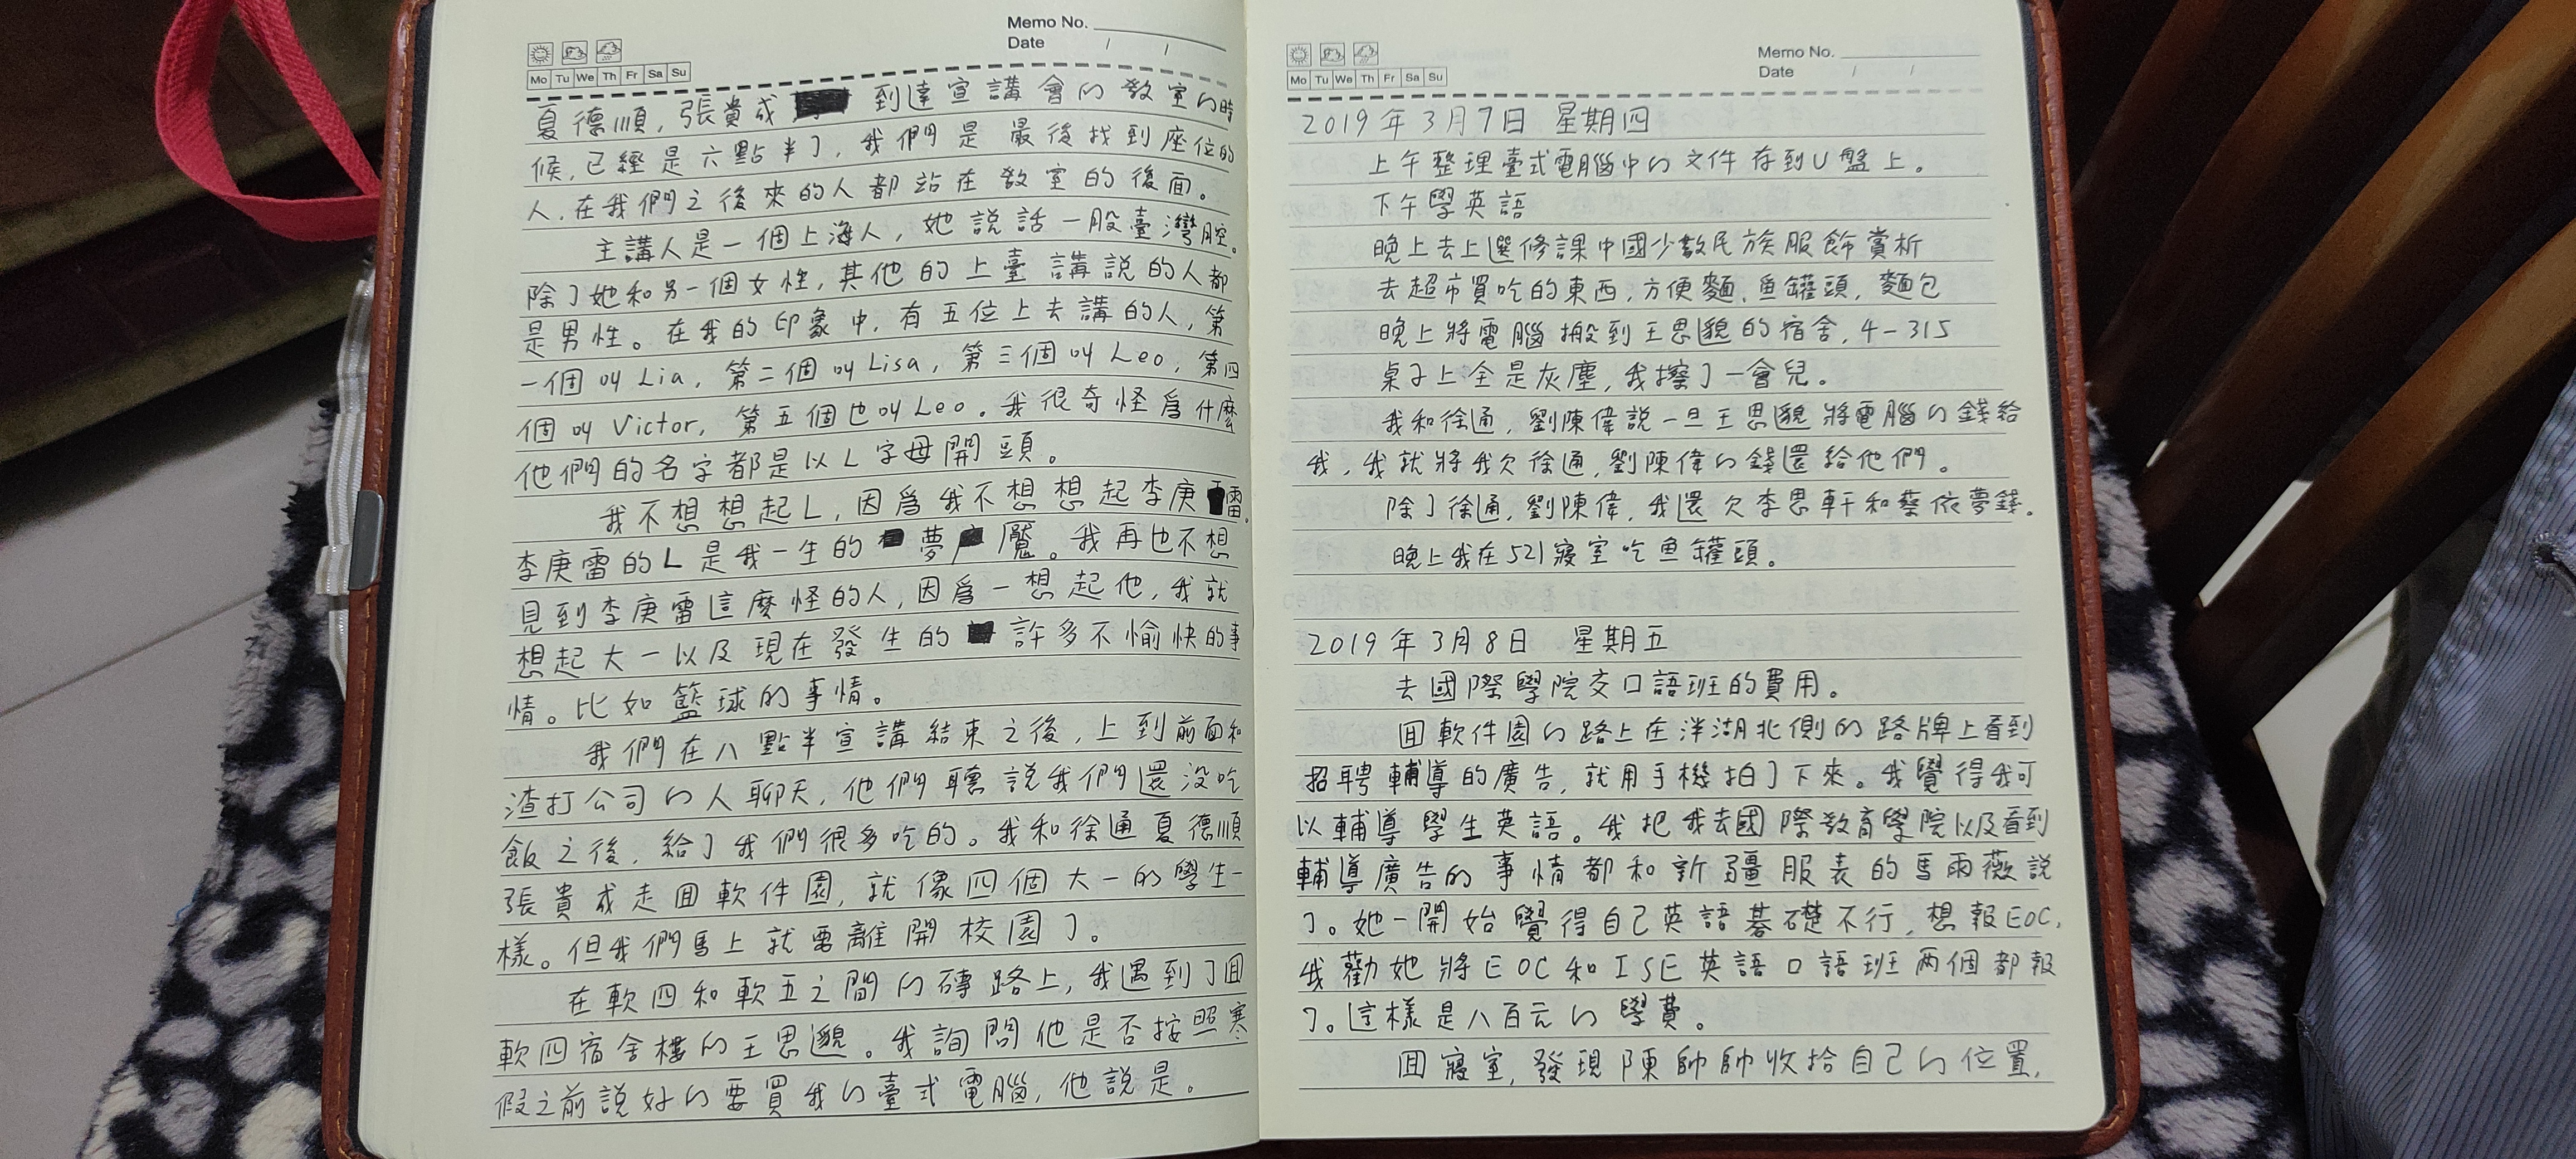 Memo No.
Date / /
Mo Tu We Th Fr Sa Su
夏德順，張貴成 到達宣講會的教室的時
候，已經是六點半了，我們是最後找到座位的
人，在我們之後來的人都站在教室的後面。
主講人是一個上海人，她説話一股臺灣腔。
除了她和另一個女性，其他的上臺講説的人都
是男性。在我的印象中，有五位上去講的人，第
一個叫Lia，第二個叫Lisa，第三個叫Leo，第四
個叫Victor，第五個也叫Leo。我很奇怪爲什麼
他們的名字都是以L字母開頭。
我不想想起L，因爲我不想想起李庚雷。
李庚雷的L是我一生的夢魘。我再也不想
見到李庚雷這麼怪的人，因爲一想起他，我就
想起大一以及現在發生的許多不愉快的事
情。比如籃球的事情。
我們在八點半宣講結束之後，上到前面和
渣打公司的人聊天，他們聽説我們還没吃
飯之後，給了我們很多吃的。我和徐通夏德順
張貴成走囬軟件園，就像四個大一的學生一
樣。但我們馬上就要離開校園了。
在軟四和軟五之間的磚路上，我遇到了囬
軟四宿舍樓的王思邈。我詢問他是否按照寒
假之前説好的要買我的臺式電腦，他説是。
Memo No.
Date / /
Mo Tu We Th Fr Sa Su
2019年3月7日 星期四
上午整理臺式電腦中的文件存到U盤上。
下午學英語
晚上去上選修課中國少數民族服飾賞析
去超市買吃的東西，方便麵，魚罐頭，麵包
晚上將電腦搬到王思邈的宿舍，4-315
桌子上全是灰塵，我擦了一會兒。
我和徐通，劉陳偉説一旦王思邈將電腦的錢給
我，我就將我欠徐通，劉陳偉的錢還給他們。
除了徐通，劉陳偉，我還欠李思軒和蔡依夢錢。
晚上我在521寢室吃魚罐頭。
2019年3月8日 星期五
去國際學院交口語班的費用。
囬軟件園的路上在泮湖北側的路牌上看到
招聘輔導的廣告，就用手機拍了下來。我覺得我可
以輔導學生英語。我把我去國際教育學院以及看到
輔導廣告的事情都和新疆服表的馬雨薇説
了。她一開始覺得自己英語基礎不行，想報EOC，
我勸她將EOC和ISE英語口語班两個都報
了。這樣是八百元的學費。
囬寢室，發現陳帥帥收拾自己的位置，